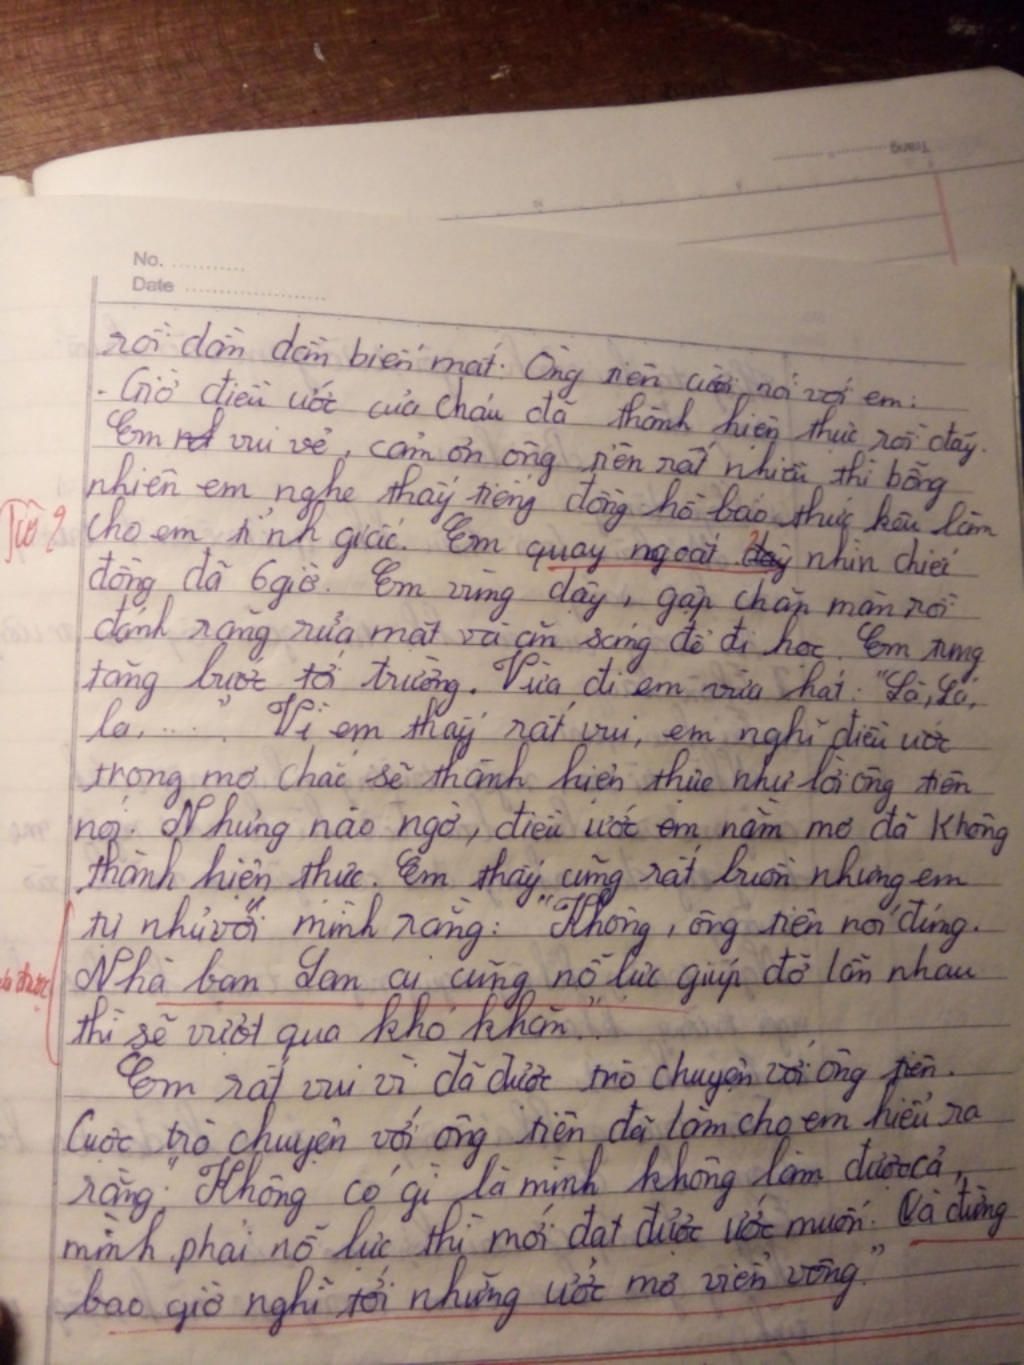 Trang
No. ............
Date ........................
rồi dần dần biến mất. Ông tiên cười nói với em:
- Giờ điều ước của cháu đã thành hiện thực rồi đấy.
Em rất vui vẻ, cảm ơn ông tiên rất nhiều thì bỗng
nhiên em nghe thấy tiếng đồng hồ báo thức kêu làm
cho em tỉnh giấc. Em quay ngoắt nhìn chiếc
đồng đã 6 giờ. Em vùng dậy, gấp chăn màn rồi
đánh răng rửa mặt và ăn sáng để đi học. Em tung
tăng bước tới trường. Vừa đi em vừa hát: "Là, Lá,
la, ....." Vì em thấy rất vui, em nghĩ điều ước
trong mơ chắc sẽ thành hiện thực như lời ông tiên
nói. Nhưng nào ngờ, điều ước em nằm mơ đã không
thành hiện thực. Em thấy cũng rất buồn nhưng em
tự nhủ với mình rằng: "Không, ông tiên nói đúng.
Nhà bạn Lan ai cũng nỗ lực giúp đỡ lẫn nhau
thì sẽ vượt qua khó khăn."
Em rất vui vì đã được trò chuyện với ông tiên.
Cuộc trò chuyện với ông tiên đã làm cho em hiểu ra
rằng: "Không có gì là mình không làm được cả,
mình phải nỗ lực thì mới đạt được ước muốn. Và đừng
bao giờ nghĩ tới những ước mơ viển vông."